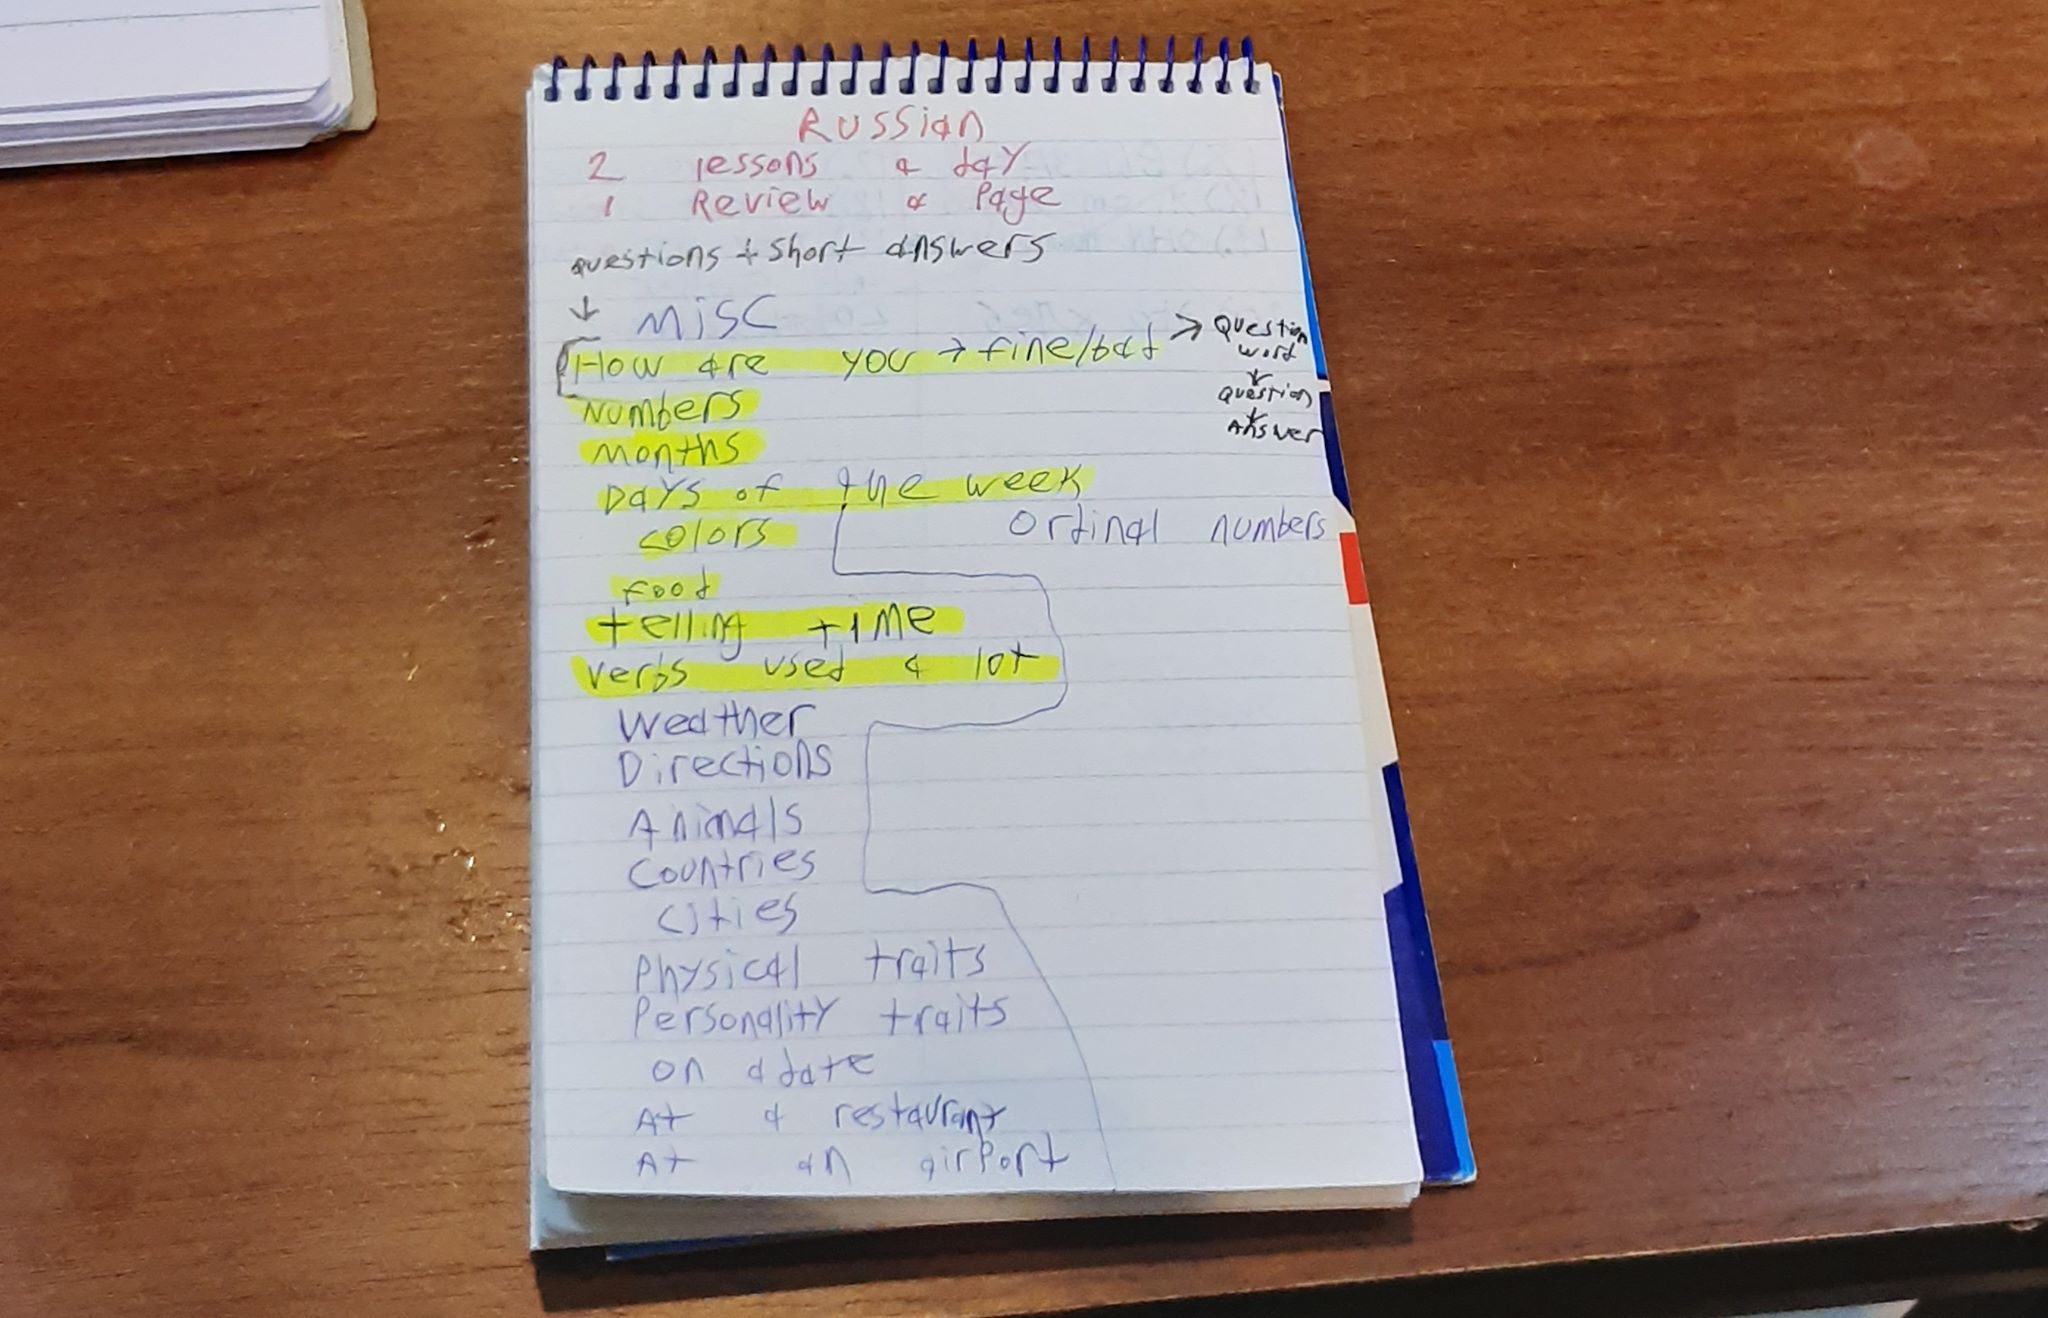 Russian
2 lessons a day
1 Review a Page
questions + short answers
↓ Misc
How are you → fine/bad → Question
word
↓
Question
↓
Answer
Numbers
months
Days of the week
colors
Ordinal numbers
food
telling time
verbs used a lot
Weather
Directions
Animals
Countries
Cities
Physical traits
Personality traits
on a date
At a restaurant
At an airport